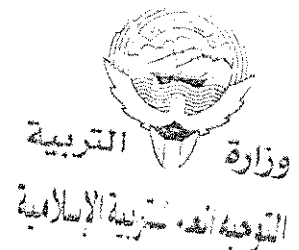 وزارة التربية
التوجيه العام للتربية الإسلامية